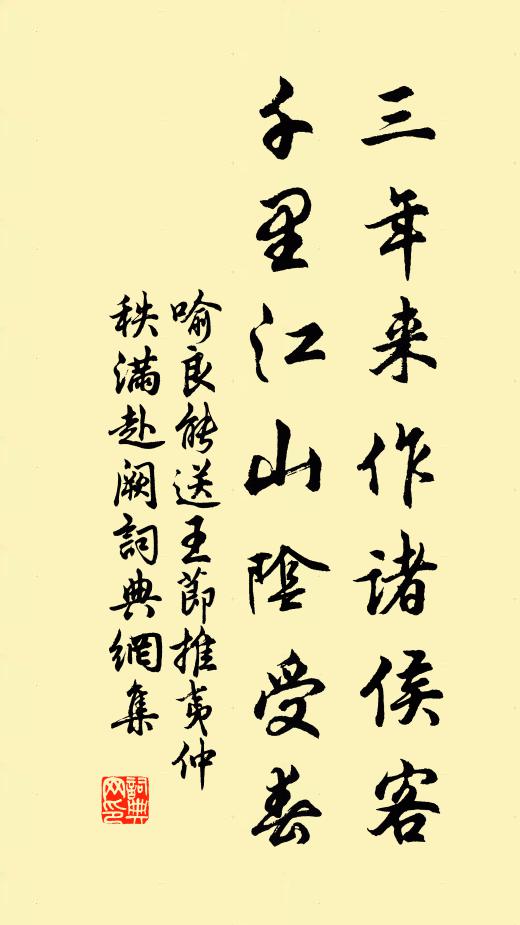 三年来作諸侯客
千里江山陰受春
喻良能送王節推夷仲
秩滿赴闕詞典網集
詞典
网印